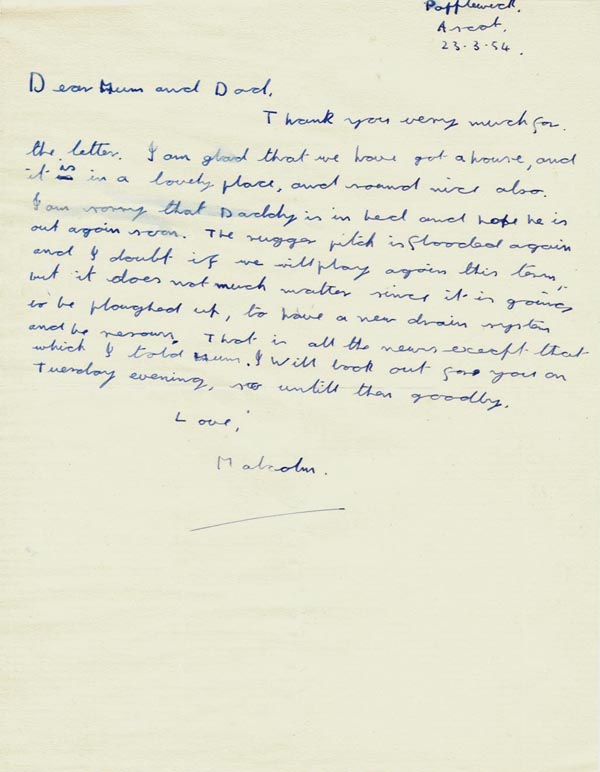 Papplewick.
Ascot.
23.3.54.
Dear Mum and Dad,
Thank you very much for.
the letter. I am glad that we have got a house, and
it is in a lovely place, and sound nice also.
I am sorry that Daddy is in bed and hope he is
out again soon. The rugger pitch is flooded again
and I doubt if we will play again this term,
but it does not much matter since it is going
to be ploughed up, to have a new drain system
and be resown. That is all the news except that
which I told Mum. I will look out for you on
Tuesday evening, so untill then goodby.
Love,
Malcolm.